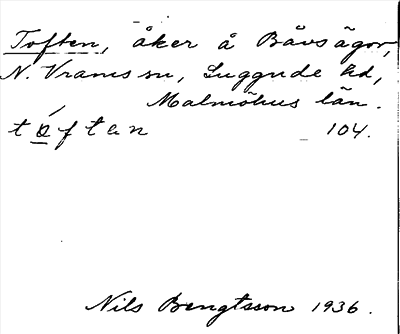 Toften, åker å Båvsägor,
N. Vrams sn, Luggude hd,
Malmöhus län.
tǿftan 104.
Nils Bengtsson 1936.